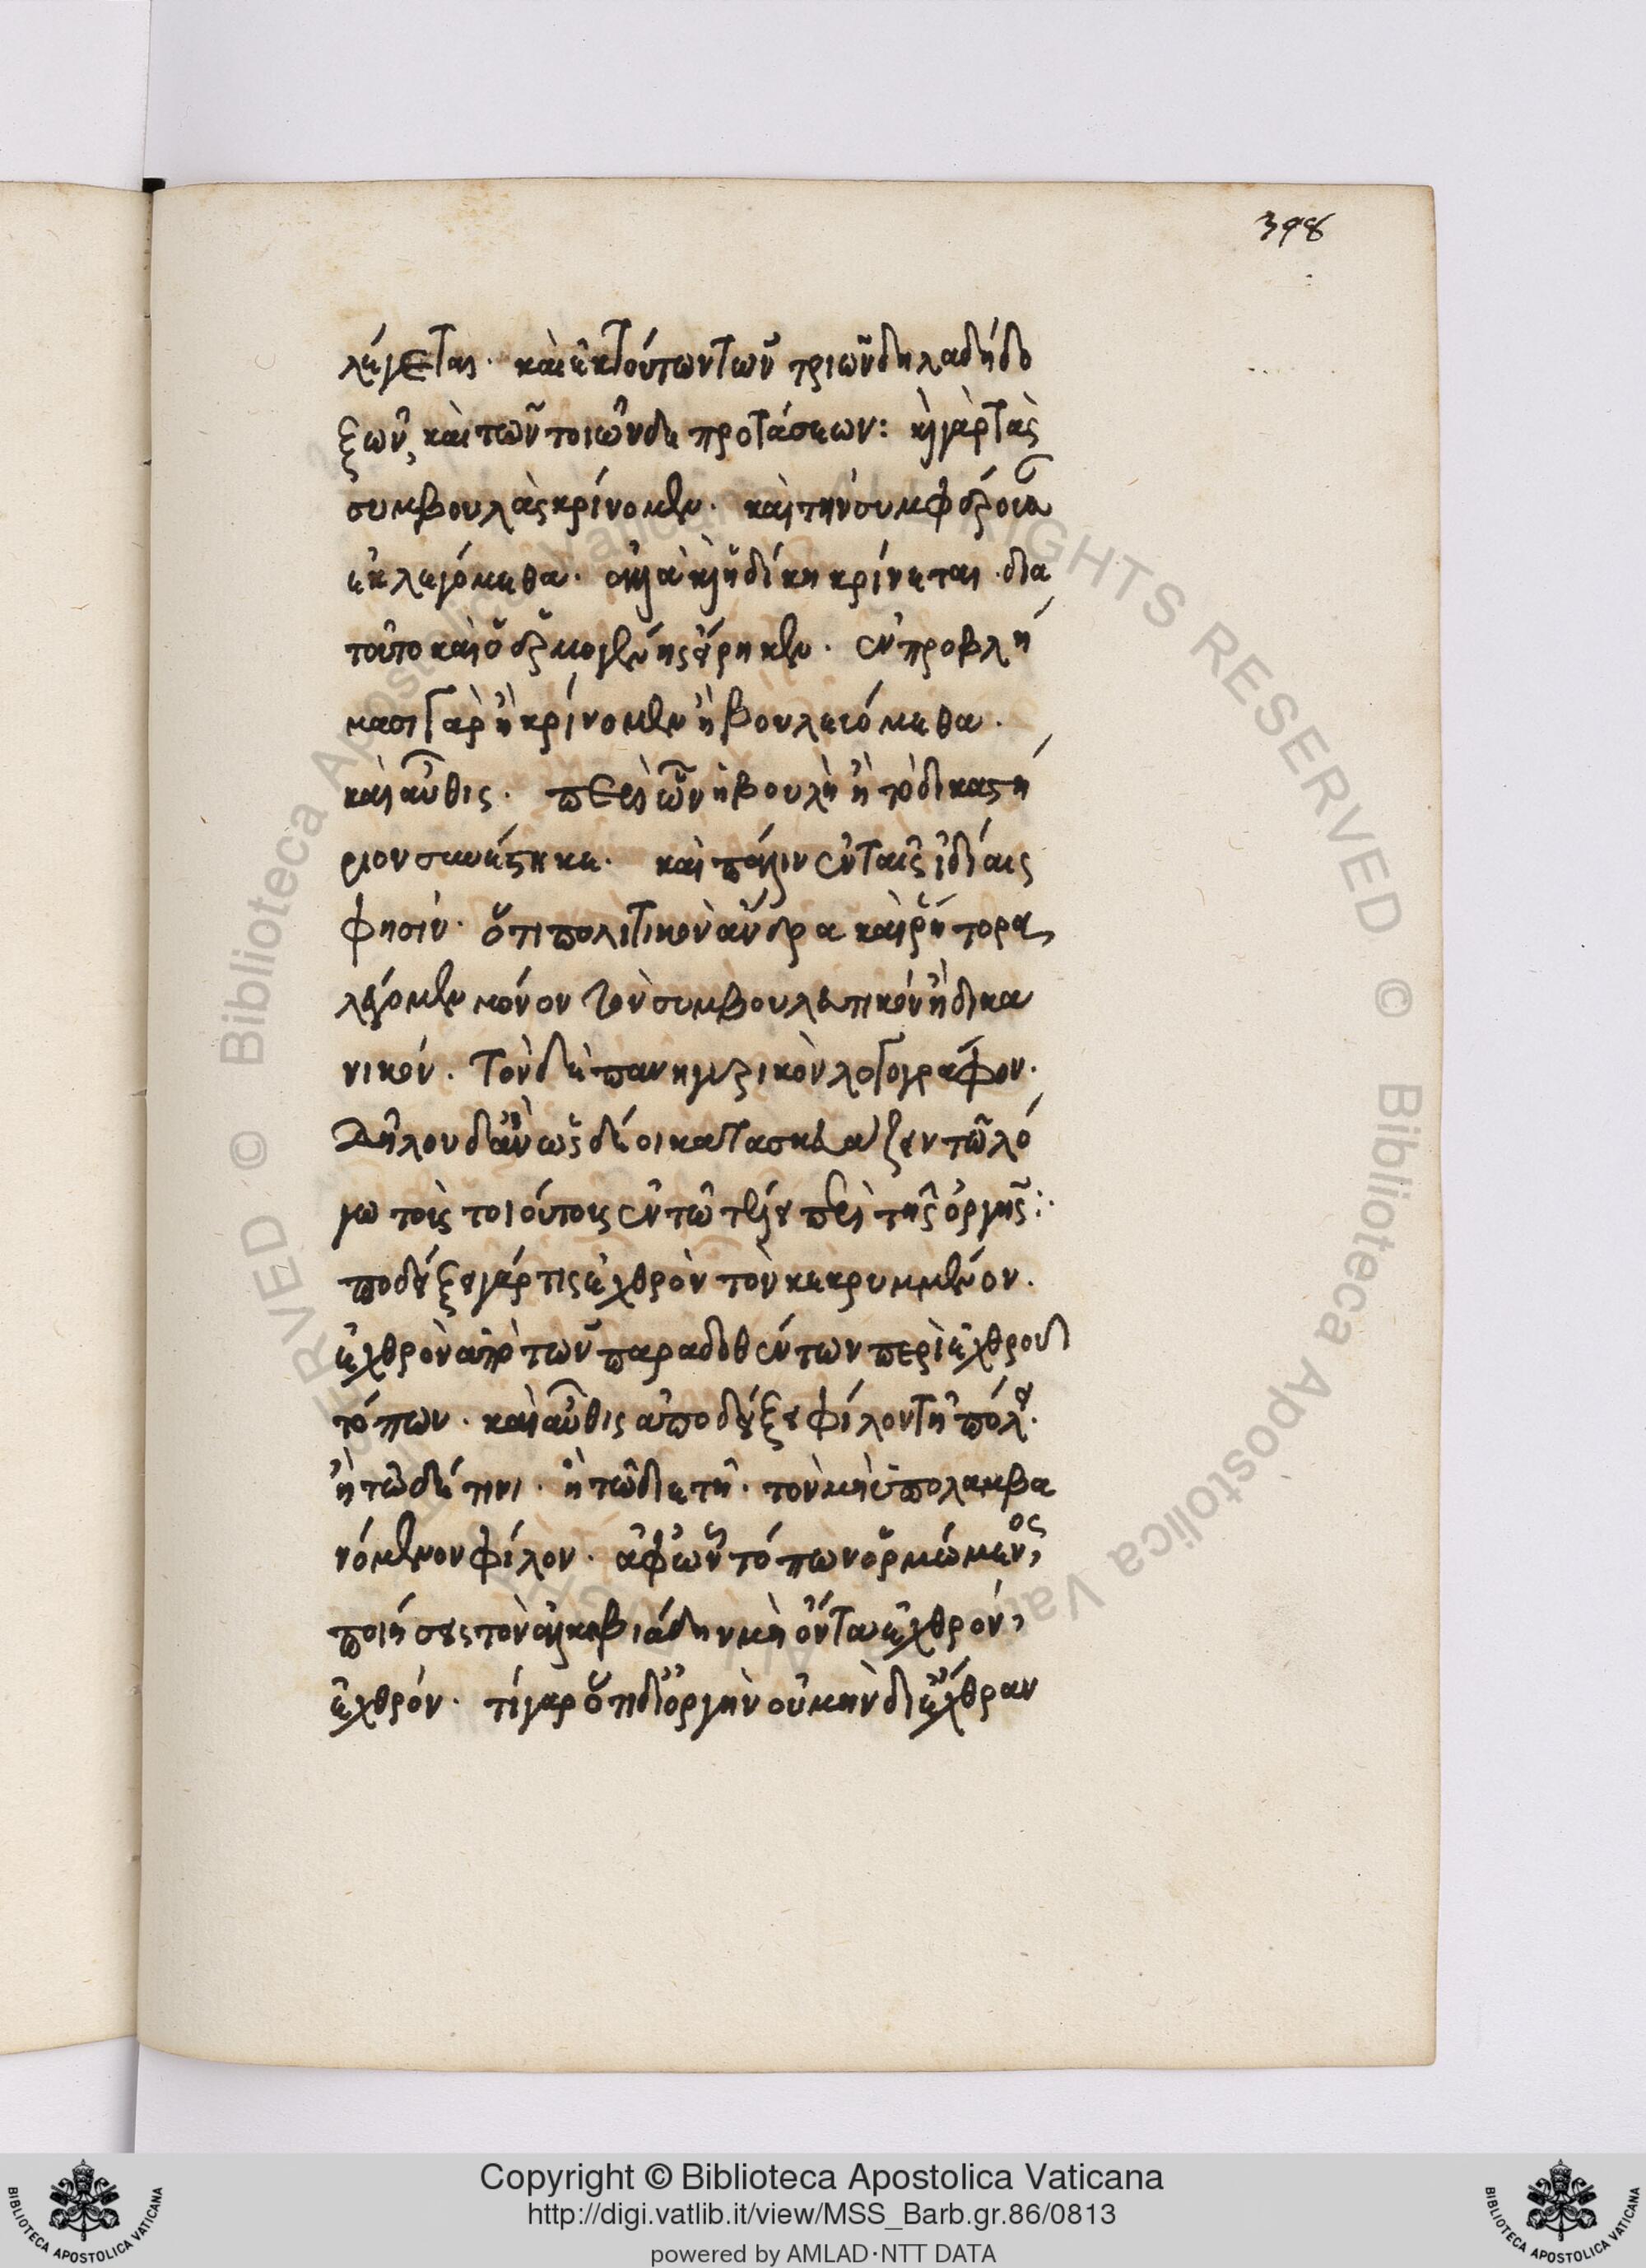 398
λέγεται. καὶ ἐκ τούτων τῶν τριῶν δηλαδὴ δο
ξῶν, καὶ τῶν τοιῶνδε προτάσεων: καὶ γὰρ τὰς
συμβουλὰς κρίνομεν. καὶ τὴν συμφέρουσαν
ἐκλεγόμεθα. ἀλλὰ καὶ ἡ δίκη κρίνεται. δια
τοῦτο καὶ ὁ ἑρμογένης εἴρηκεν. ἐν προβλή
μασι γὰρ ἢ κρίνομεν ἢ βουλευόμεθα.
καὶ αὖθις. περὶ ὧν ἡ βουλὴ ἢ τὸ δικαστή
ριον συνέστηκε. καὶ πάλιν ἐν ταῖς ἰδίαις
φησίν. ὅτι πολιτικὸν ἄνδρα καὶ ῥήτορα,
λέγομεν μόνον τὸν συμβουλευτικὸν ἢ δικα
νικόν. τὸν δὲ πανηγυρικὸν λογογράφον.
Δῆλον δ' ἂν ὡς δέοι κατασκευάζειν τῶ λό
γω τοῖς τοιούτοις ἐν τῶ τέλει περὶ τῆς ὀργῆς:
ποδείξει γάρ τις ἐχθρὸν τὸν κεκρυμμένον.
ἐχθρὸν ἀπὸ τῶν παραδοθέντων περὶ ἐχθροῦ
τόπων. καὶ αὖθις ἀποδείξει φίλον τῆ πόλει.
ἢ τῶδέ τινι. ἢ τῶδε τῆ. τὸν μὴ ὑπολαμβα
νόμενον φίλον. ἀφ' ὧν τόπων ὁρμώμενος,
ποιήσεις τὸν ἀλκιβιάδην μὴ ὄντα ἐχθρόν,
ἐχθρόν. τί γαρ ὅτι δι' ὀργὴν οὐ μὴν δι' ἔχθραν
Copyright © Biblioteca Apostolica Vaticana
http://digi.vatlib.it/view/MSS_Barb.gr.86/0813
powered by AMLAD·NTT DATA